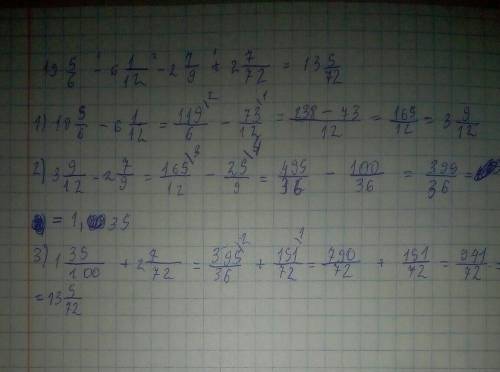 19 5/6 - 6 1/12 - 2 7/9 + 2 7/72 = 13 5/72
1) 18 5/6 - 6 1/12 = 119/6 \2 - 73/12 \1 = 238 - 73/12 = 165/12 = 3 9/12
2) 3 9/12 - 2 7/9 = 165/12 \3 - 25/9 \4 = 495/36 - 100/36 = 395/36 =
= 1, 35
3) 1 35/100 + 2 7/72 = 395/36 \2 + 151/72 \1 = 790/72 + 151/72 = 941/72 =
= 13 5/72